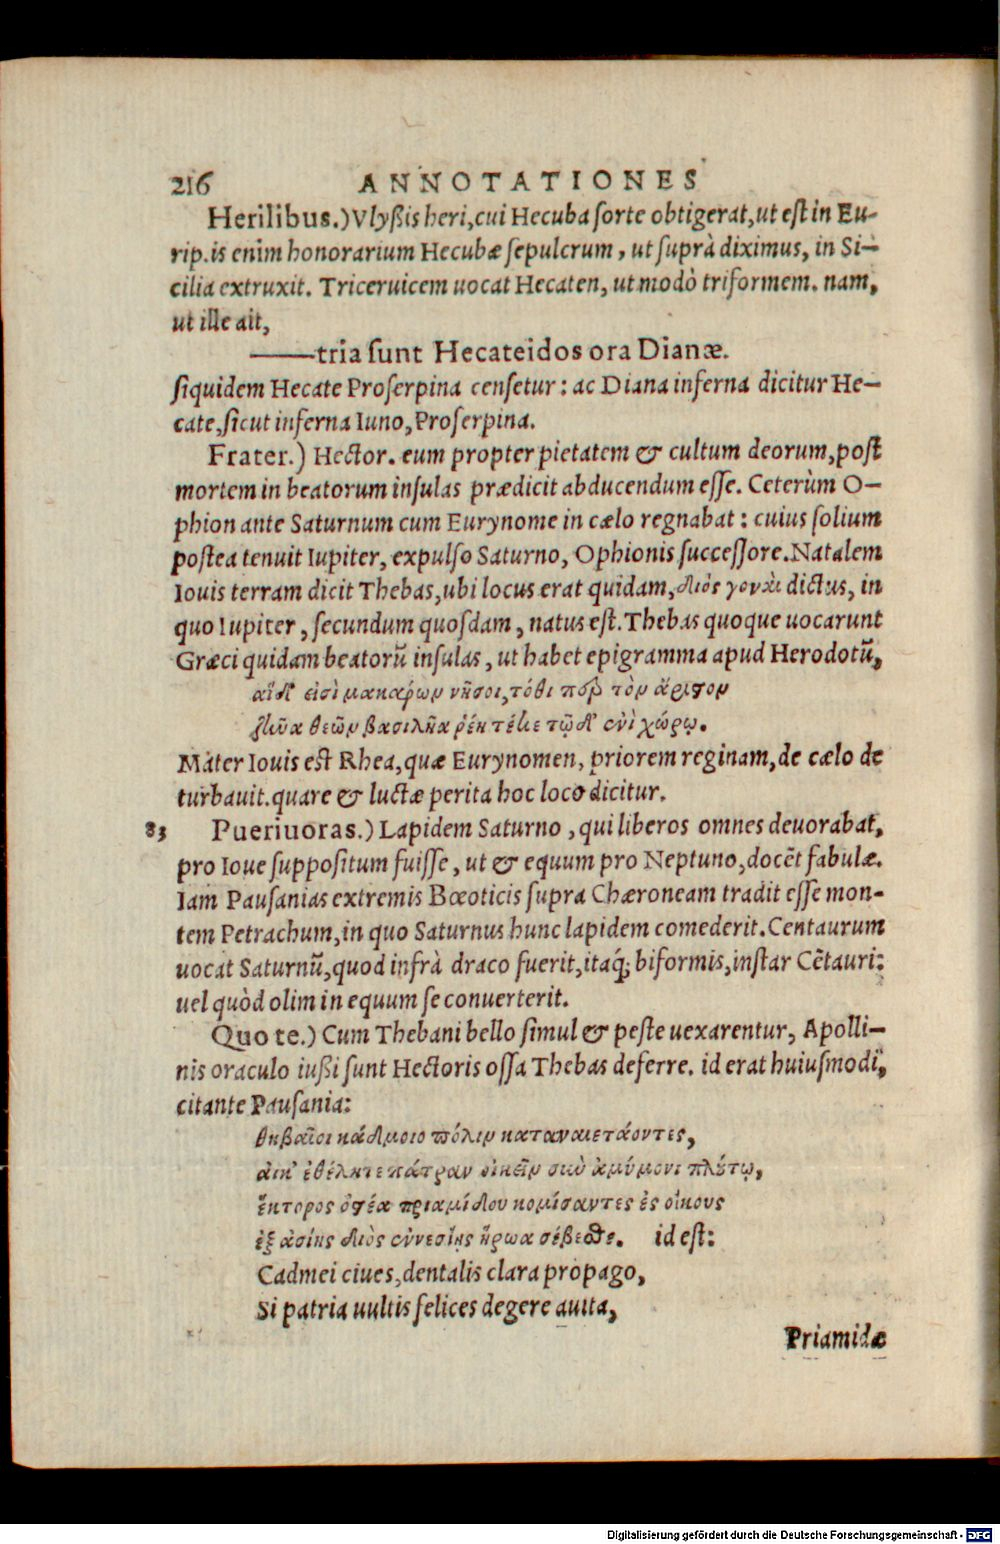 216 ANNOTATIONES
Herilibus.) Vlyßis heri, cui Hecuba sorte obtigerat, ut est in Eu-
rip. is enim honorarium Hecubæ sepulcrum, ut suprà diximus, in Si-
cilia extruxit. Triceruicem uocat Hecaten, ut modò triformem. nam,
ut ille ait,
——tria sunt Hecateidos ora Dianæ.
siquidem Hecate Proserpina censetur: ac Diana inferna dicitur He-
cate, sicut inferna Iuno, Proserpina.
Frater.) Hector. eum propter pietatem & cultum deorum, post
mortem in beatorum insulas prædicit abducendum esse. Ceterùm O-
phion ante Saturnum cum Eurynome in cælo regnabat: cuius solium
postea tenuit Iupiter, expulso Saturno, Ophionis successore. Natalem
Iouis terram dicit Thebas, ubi locus erat quidam, διὸς γοναὶ dictus, in
quo Iupiter, secundum quosdam, natus est. Thebas quoque uocarunt
Græci quidam beatorũ insulas, ut habet epigramma apud Herodotũ,
αἵδ' εἰσὶ μακάρων νῆσοι, τόθι πὲρ τὸν ἄριστον
ζῆνα θεῶν βασιλῆα ῥέη τέκε τῷδ' ἐνὶ χώρῳ.
Mater Iouis est Rhea, quæ Eurynomen, priorem reginam, de cælo de
turbauit. quare & luctæ perita hoc loco dicitur.
83 Pueriuoras.) Lapidem Saturno, qui liberos omnes deuorabat,
pro Ioue suppositum fuisse, ut & equum pro Neptuno, docẽt fabulæ.
Iam Pausanias extremis Bœoticis supra Chæroneam tradit esse mon-
tem Petrachum, in quo Saturnus hunc lapidem comederit. Centaurum
uocat Saturnũ, quod infrà draco fuerit, itaq́; biformis, instar Cẽtauri:
uel quòd olim in equum se conuerterit.
Quo te.) Cum Thebani bello simul & peste uexarentur, Apolli-
nis oraculo iußi sunt Hectoris ossa Thebas deferre. id erat huiusmodi,
citante Pausania:
θηβαῖοι κάδμοιο πόλιν καταναιετάοντες,
αἴκ' ἐθέλητε πάτραν οἰκεῖν σὺν ἀμύμονι πλούτῳ,
ἕκτορος ὀστέα πριαμίδου κομίσαντες ἐς οἴκους
ἐξ ἀσίης διὸς ἐννεσίῃς ἥρωα σέβεσθε. id est:
Cadmei ciues, dentalis clara propago,
Si patria uultis felices degere auita,
Priamidæ
Digitalisierung gefördert durch die Deutsche Forschungsgemeinschaft - DFG